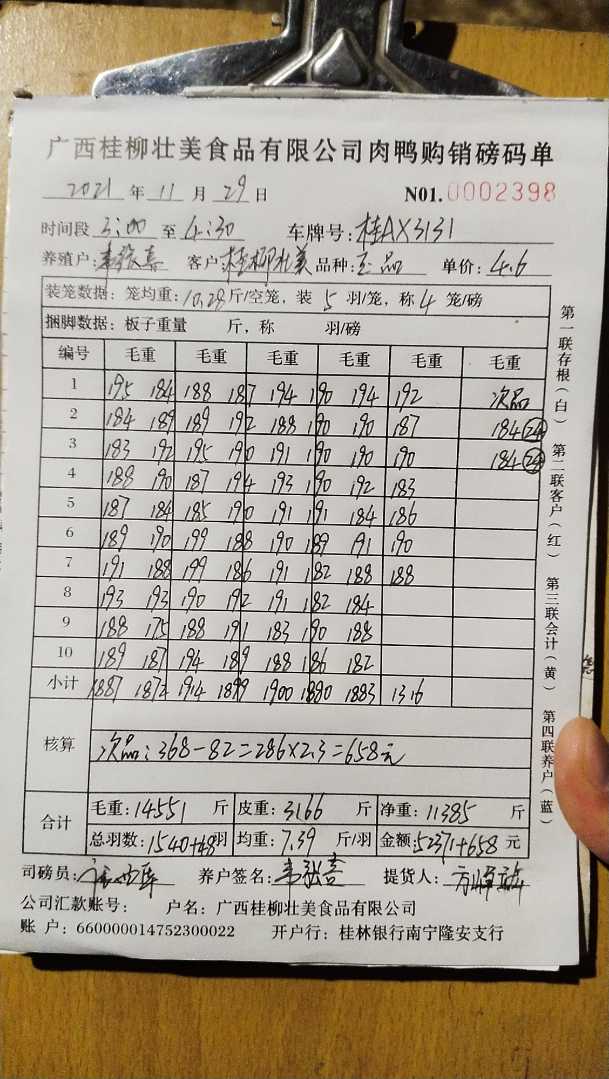 广西桂柳壮美食品有限公司肉鸭购销磅码单
2021 年 11 月 29 日 NO1.0002398
时间段 3:00 至 4:30 车牌号:桂AX3131
养殖户: 客户:桂柳壮美 品种:正品 单价:4.6
装笼数据:笼均重:10.28斤/空笼,装 5 羽/笼,称 4 笼/磅
捆脚数据:板子重量 斤,称 羽/磅
编号 毛重 毛重 毛重 毛重 毛重 毛重
1 195 184 188 187 194 190 194 192 次品
2 184 189 189 192 188 190 190 187 184 24
3 183 192 195 190 191 190 190 190 184 24
4 188 190 187 194 193 190 192 183
5 187 184 185 190 191 191 184 186
6 189 190 199 188 190 189 191 190
7 191 188 199 186 191 182 188 188
8 193 193 190 192 191 182 184
9 188 175 188 191 183 190 188
10 189 187 194 189 188 186 182
小计 1887 1872 1914 1899 1900 1880 1883 1316
核算 次品:368-82=286×2.3=658元
合计 毛重:14551 斤 皮重:3166 斤 净重:11385 斤
总羽数:1540+48羽 均重:7.39 斤/羽 金额:52371+658 元
司磅员: 养户签名: 提货人:
公司汇款账号: 户名:广西桂柳壮美食品有限公司
账 户:660000014752300022 开户行:桂林银行南宁隆安支行
第一联存根(白) 第二联客户(红) 第三联会计(黄) 第四联养户(蓝)